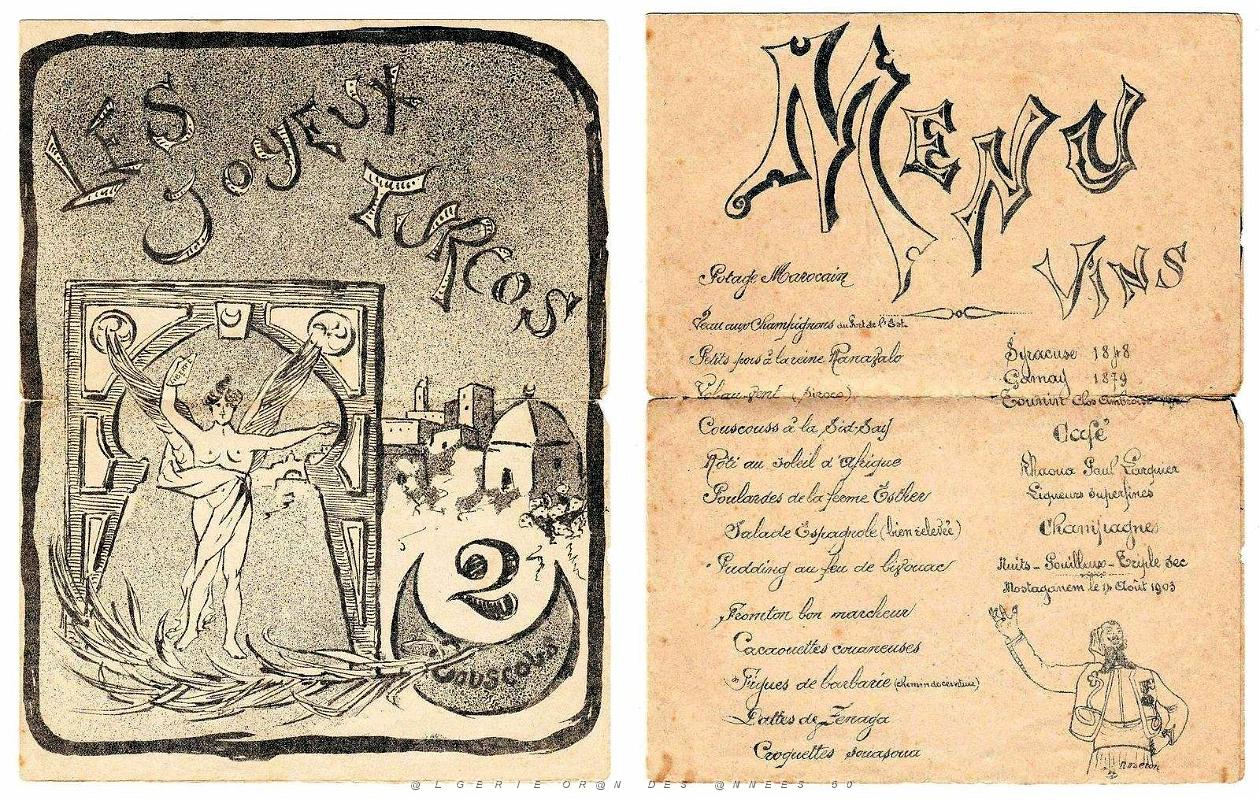 LES
JOYEUX
TURCOS
2
COUSCOUS
MENU
Potage Marocain
Veau aux Champignons du Fort de l'Est
Petits pois à la reine Ranavalo
Vol au vent (Siroco)
Couscouss à la Sidi Sayf
Rôti au soleil d'Afrique
Poulardes de la ferme Esther
Salade Espagnole (bien relevée)
Pudding au feu de bivouac
Fromton bon marcheur
Cacaouettes couaneuses
Figues de barbarie (chemin de ceinture)
Dattes de Zenaga
Croquettes souasoua
VINS
Syracuse
Gamay 1879
Clos
Café
Khaoua Paul Larguer
Liqueurs superfines
Champagnes
Nuits - Pouilleux - Triple sec
Mostaganem le Août 1903
@LGERIE OR@N DES @NNEES 50